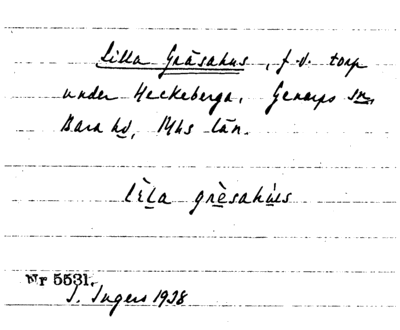 Lilla Gräsahus, f.d. torp
under Heckeberga, Genarps sn,
Bara hd, Mhs län.
lìla grèsahùs
Nr 5531.
I. Ingers 1938